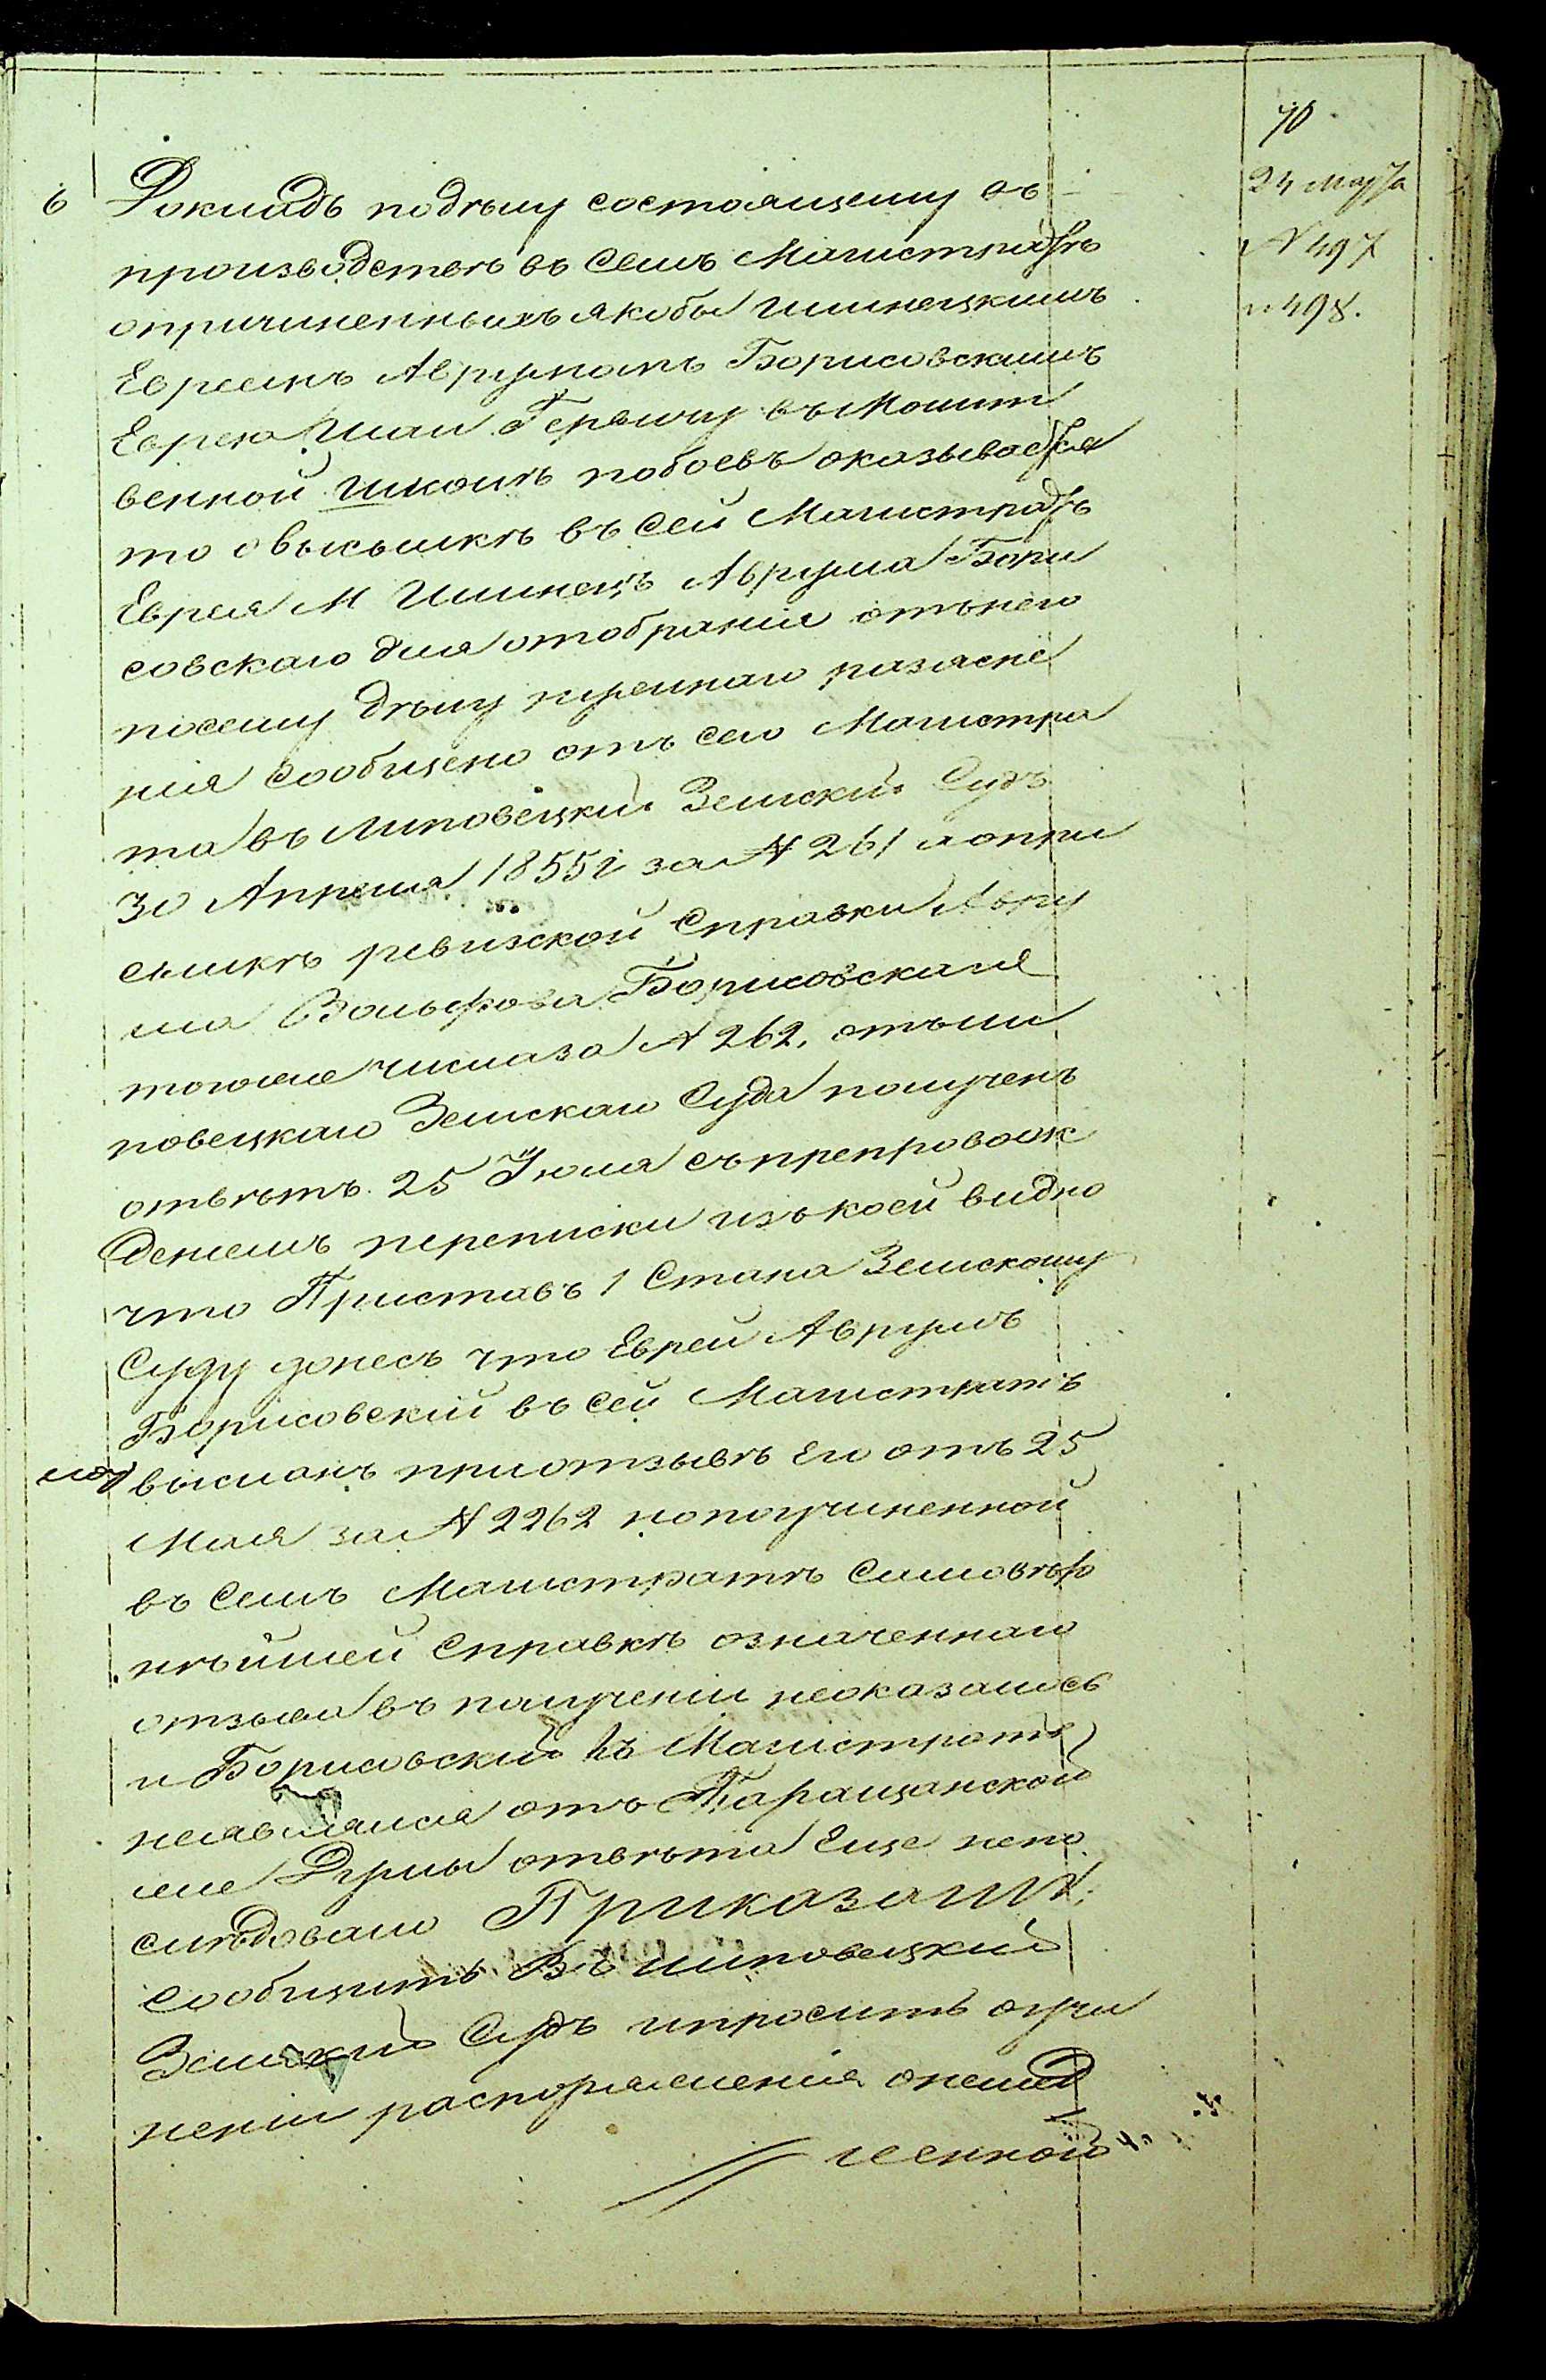 70
24 Марта
№ 497
и 498.
6 Докладъ по дѣлу состоящему въ
производствѣ въ Семъ Магистратѣ
опричиненныхъ якобы Илинецкимъ
Евреемъ Аврумомъ Борисовскимъ
Еврею Гершку въ Молит
венной школѣ побоевъ оказывается
то о высылкѣ въ Сей Магистратъ
Еврея М Илинецъ Аврума Бори
совскаго для отобранія отънего
посему дѣлу нужнаго разъясне
нія сообщено отъ сего Магистра
та въ Липовецкій Земскій Судъ
30 Апреля 1855 г за № 261 а опри
сылкѣ ревизской Справки Авру
ма Вольфова Борисовскаго
тогоже числа за № 262, отъ Ли
повецкаго Земскаго Суда полученъ
отвѣтъ 25 Іюля съ препровож
деніемъ переписки изъ коей видно
что Приставъ 1 Стана Земскому
Суду донесъ что Еврей Аврумъ
Борисовскій въ сей Магистратъ
высланъ приотзывѣ Его отъ 25
Мая за № 2262 нопоучиненной
въ Семъ Магистратѣ Самовѣр
нѣйшей Справкѣ означеннаго
отзыва въ полученіи неоказалось
и Борисовскій въ Магистратъ
неявлялся отъ Таращанской
же Думы отвѣта Еще непо
слѣдовало Приказали:
Сообщить Въ Липовецкій
Земскій Судъ ипросить оучи
неніи распоряженія онемед
ленной